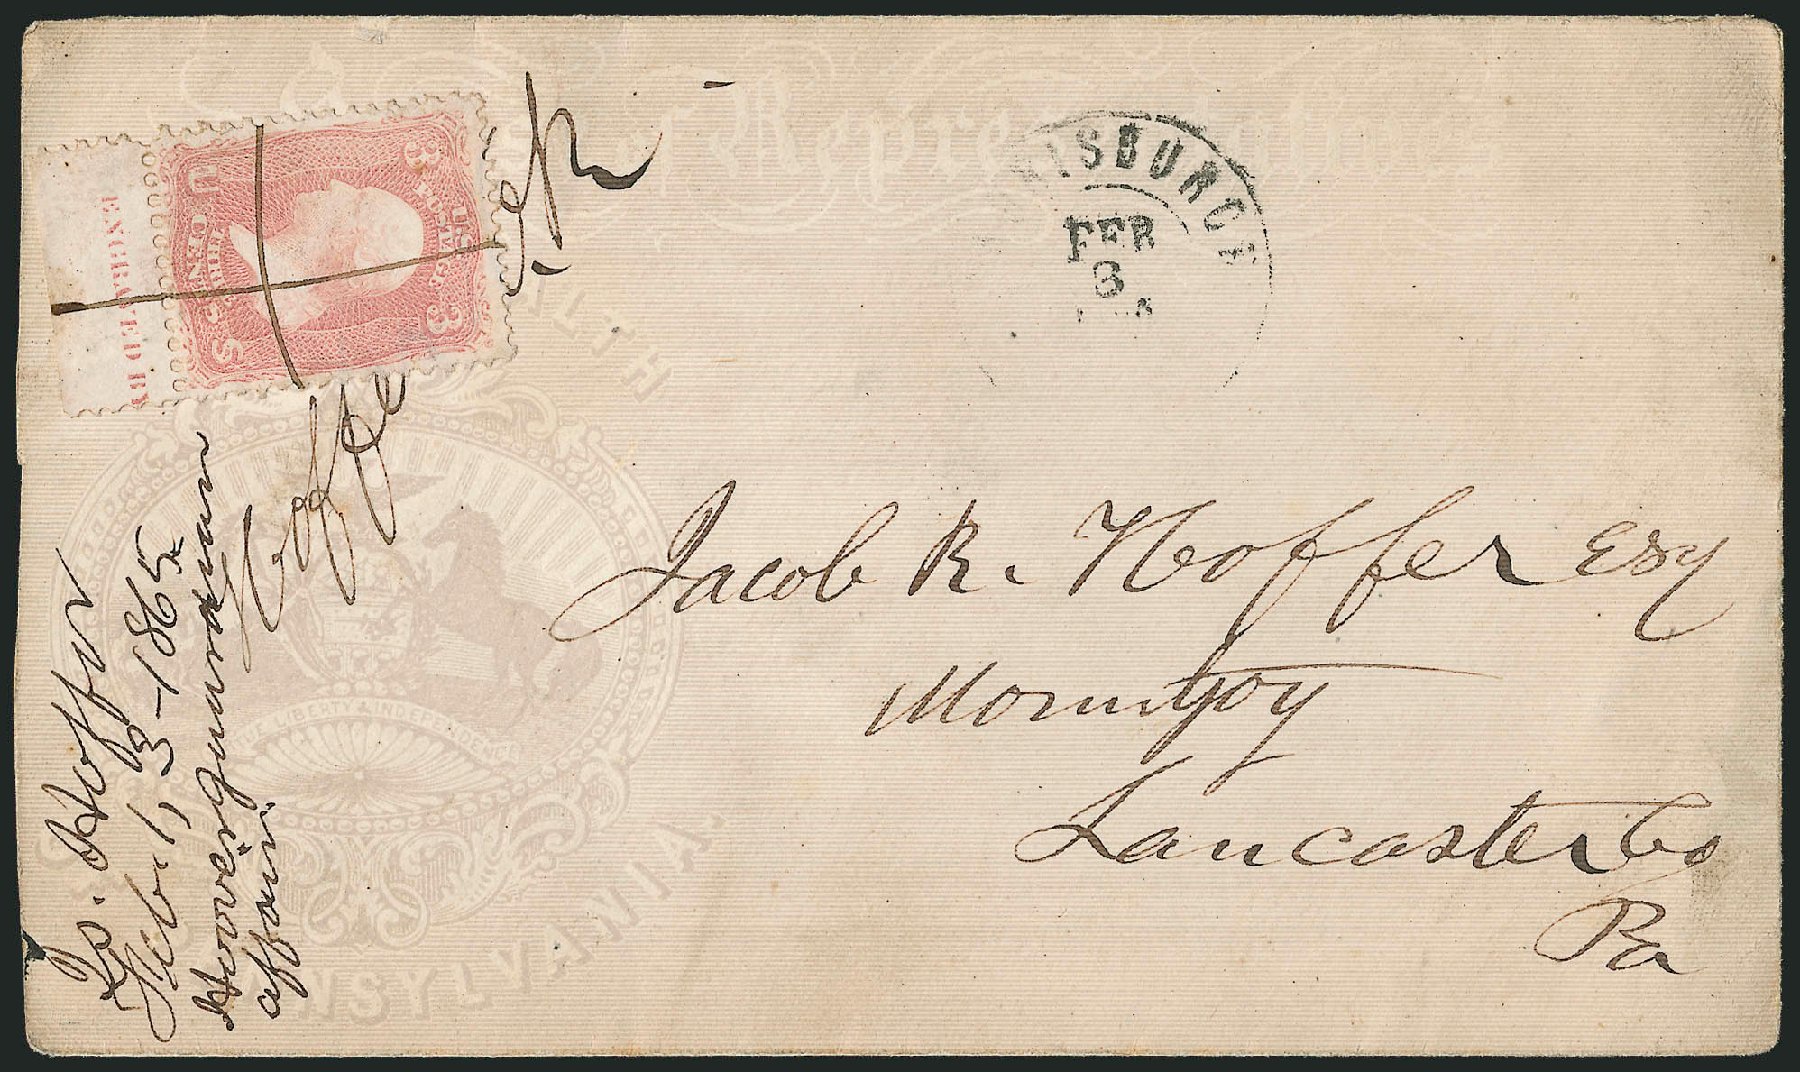 of Representatives
ENGRAVED BY
3
U.S. POSTAGE
3
U
THREE CENTS
S
RISBURG
FEB
3
Jacob R. Hoffer Esq
Mountjoy
Lancaster Co
Pa
Hoffer
Feb. 1, 3 - 1865
affair
LTH
VIRTUE LIBERTY & INDEPENDENCE
NSYLVANIA